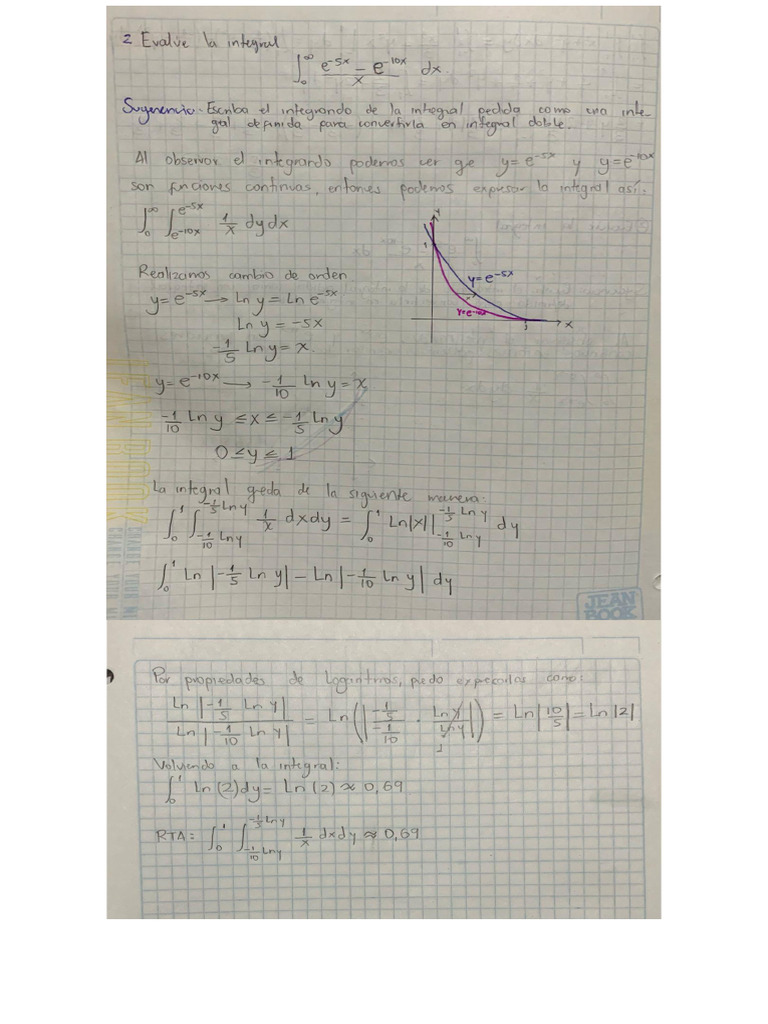 2 Evalue la integral
∫₀^∞ (e^-5x - e^-10x)/x dx.
Sugerencia: Escriba el integrando de la integral pedida como una inte-
gral definida para convertirla en integral doble.
Al observar el integrando podemos ver qe y=e^-5x y y=e^-10x
son funciones continuas, entonces podemos expresar la integral así:
∫₀^∞ ∫_{e^-10x}^{e^-5x} 1/x dydx
y
1
y=e^-5x
y=e^-10x
1
x
Realizamos cambio de orden.
y=e^-5x → Ln y = Ln e^-5x
Ln y = -5x
-1/5 Ln y = x.
y=e^-10x → -1/10 Ln y = x
-1/10 Ln y ≤ x ≤ -1/5 Ln y
0 ≤ y ≤ 1
La integral qeda de la siguiente manera:
∫₀^1 ∫_{-1/10 Ln y}^{-1/5 Ln y} 1/x dxdy = ∫₀^1 Ln|x| |_{-1/10 Ln y}^{-1/5 Ln y} dy
∫₀^1 Ln |-1/5 Ln y| - Ln |-1/10 Ln y| dy
JEAN
BOOK
Por propiedades de logaritmos, puedo expresarlas como:
Ln |-1/5 Ln y| / Ln |-1/10 Ln y| = Ln(|(-1/5)/(-1/10) · Ln y/Ln y|) = Ln|10/5| = Ln |2|
1
Volviendo a la integral:
∫₀^1 Ln(2) dy = Ln(2) ≈ 0,69
RTA: ∫₀^1 ∫_{-1/10 Ln y}^{-1/5 Ln y} 1/x dxdy ≈ 0,69